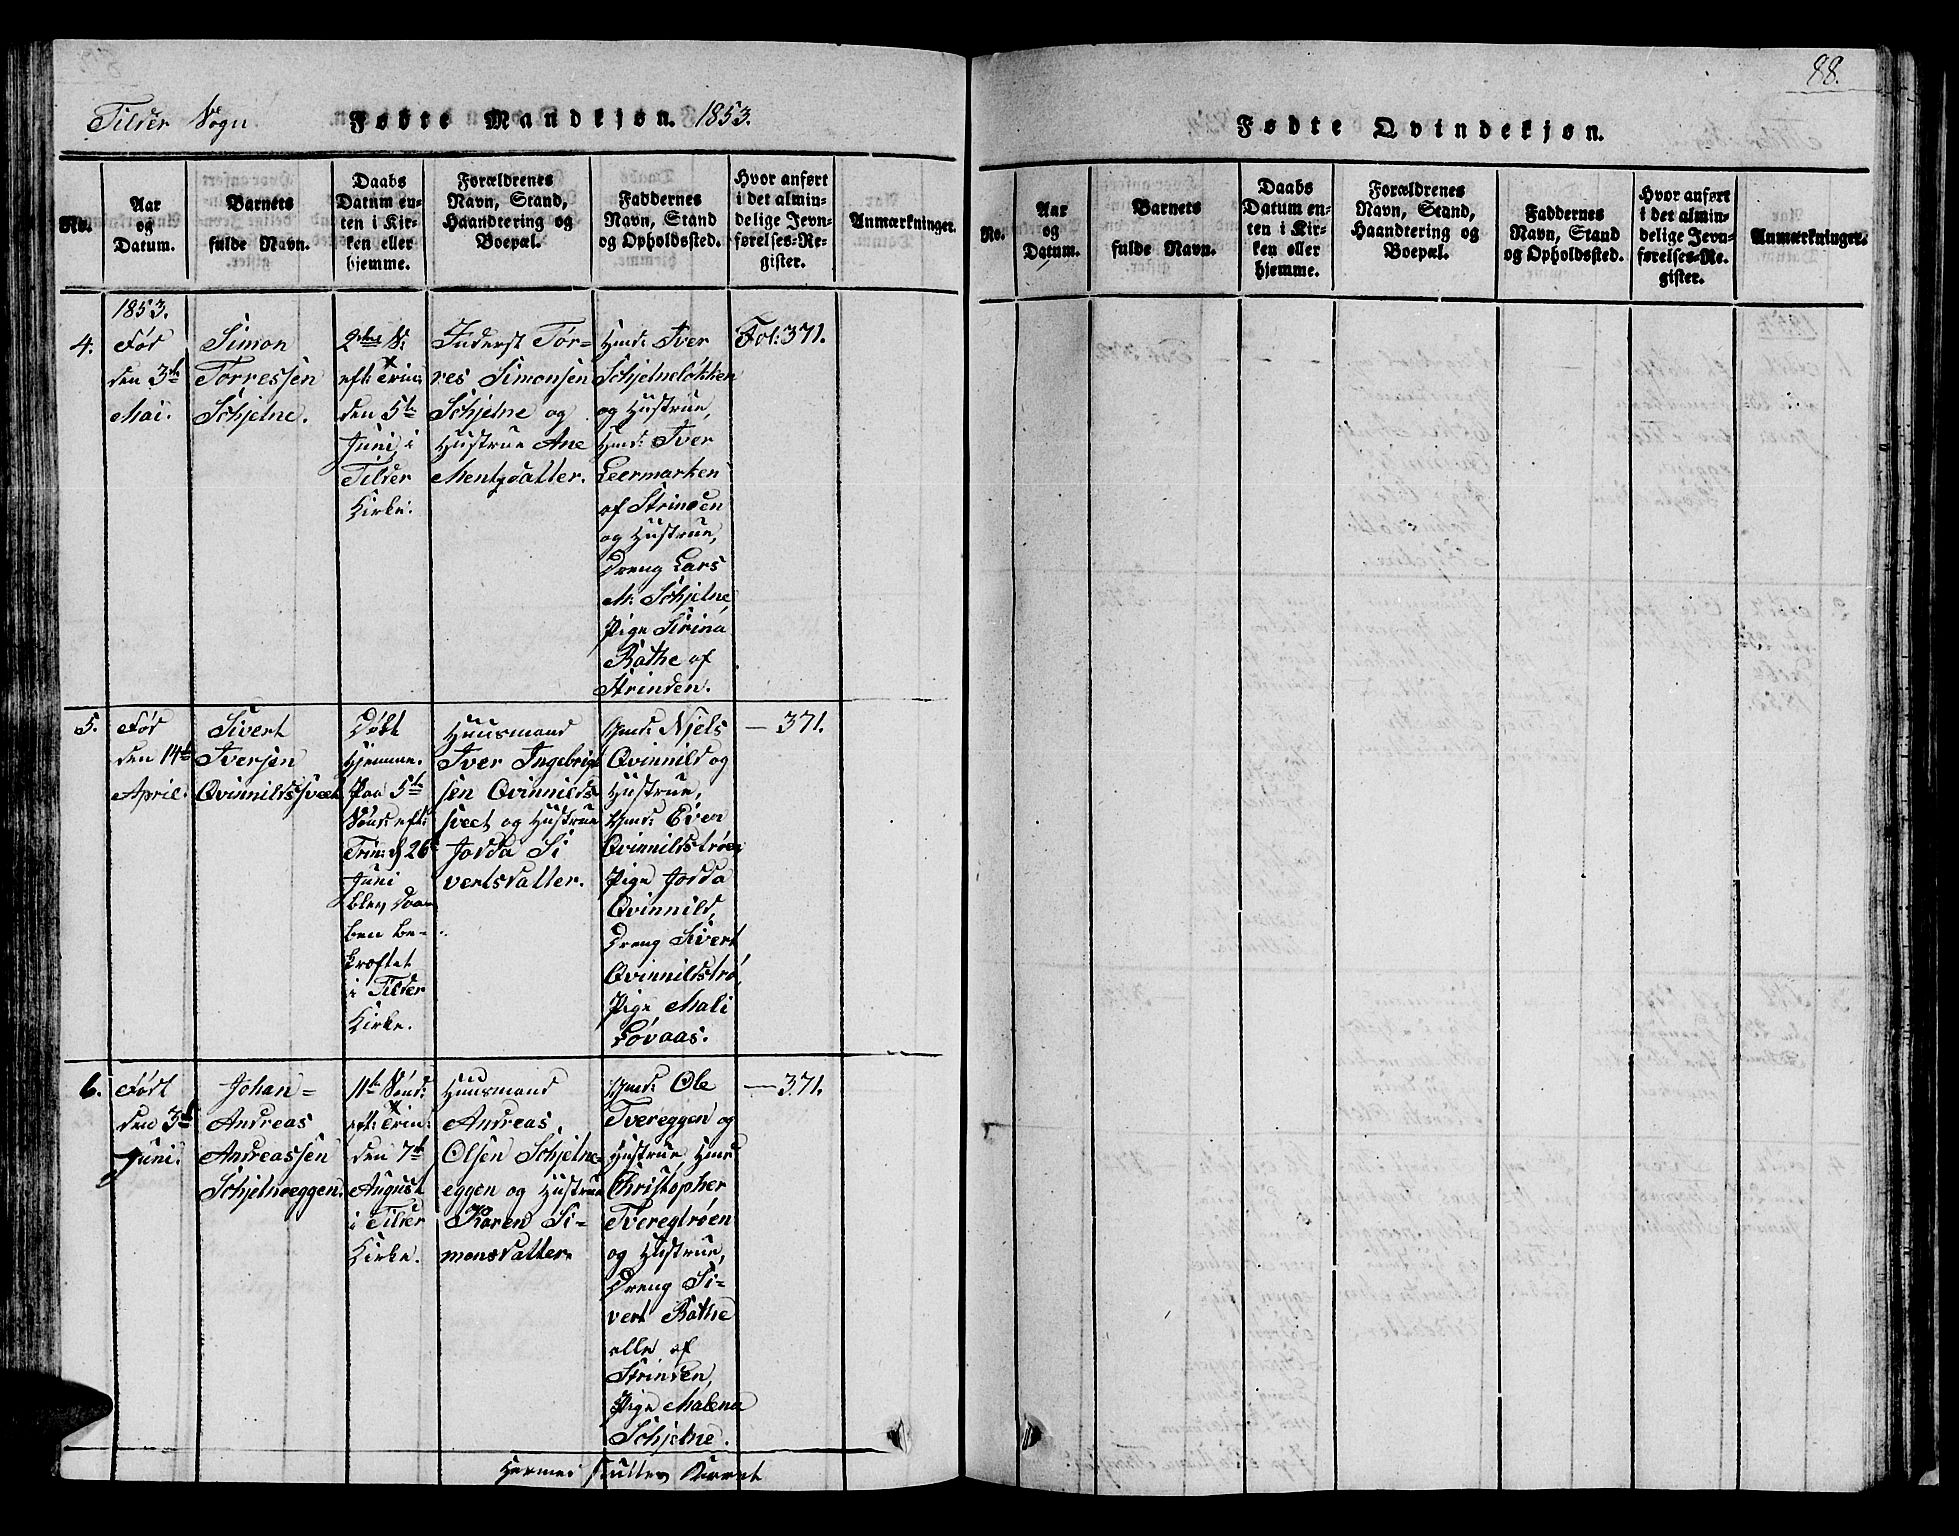 Tilder Sogn.
Fødte Mandkjøn. 1853.
No.
Aar
og
Datum.
Barnets
fulde Navn.
Daabs
Datum en-
ten i Kir-
ken eller
hjemme.
Forældrenes
Navn, Stand,
Haandtering og
Boepæl.
Faddernes
Navn, Stand
og Opholdssted.
Hvor anført
i det almin-
delige Jevn-
førelses-Re-
gister.
Anmærkninger.
1853.
4.
Fød
den 3die
Mai.
Simon
Torressen
Schjelne.
2den S:
eft: Trin:
den 5te
Juni, i
Tilder
Kirke.
Inderst Tør-
res Simonsen
Schjelne og
Hustrue Ane
Mentzdatter.
Hmd: Iver
Schjelneløkken
og Hustrue,
Hmd: Iver
Leermarken
af Strinden
og Hustrue,
Dreng Lars
M: Schjelne
Pige Sirina
Rathe af
Strinden.
Fol: 371.
5.
Fød
den 14de
April.
Sivert
Iversen
Qvinnildssveet
Døbt
hjemme.
Paa 5te
Sønd: eft:
Trin: d 26
Juni
blev Daa-
ben be-
kræftet
i Tilder
Kirke.
Huusmand
Iver Ingebrigt
sen Qvinnilds-
sveet og Hustrue
Jodda Si
vertsdatter.
Gmd: Njels
Qvinnild og
Hustrue,
Gmd: Even
Qvinnildstrøen
Pige Jodda
Qvinnild,
Dreng Sivert
Qvinnildstrø,
Pige Mali
Løvaas.
— 371.
6.
Født
den 3die
Juni.
Johan=
Andreas
Andreassen
Schjelneeggen.
11te Sønd:
eft: Trin:
den 7de
August
i Tilder
Kirke.
Huusmand
Andreas
Olsen Schjelne-
eggen og Hustrue
Karen Si-
monsdatter.
Gmd: Ole
Tvereggen og
Hustrue, Hmd:
Christopher
Tveregtrøen
og Hustrue,
Dreng Si-
vert Rathe
alle af
Strinden,
Pige Malena
Schjelne.
— 371.
88.
Fødte Qvindekjøn.
No.
Aar
og
Datum.
Barnets
fulde Navn.
Daabs
Datum en-
ten i Kir-
ken eller
hjemme.
Forældrenes
Navn, Stand,
Haandtering og
Boepæl.
Faddernes
Navn, Stand
og Opholdssted.
Hvor anført
i det almin-
delige Jevn-
førelses-Re-
gister.
Anmærkninger.